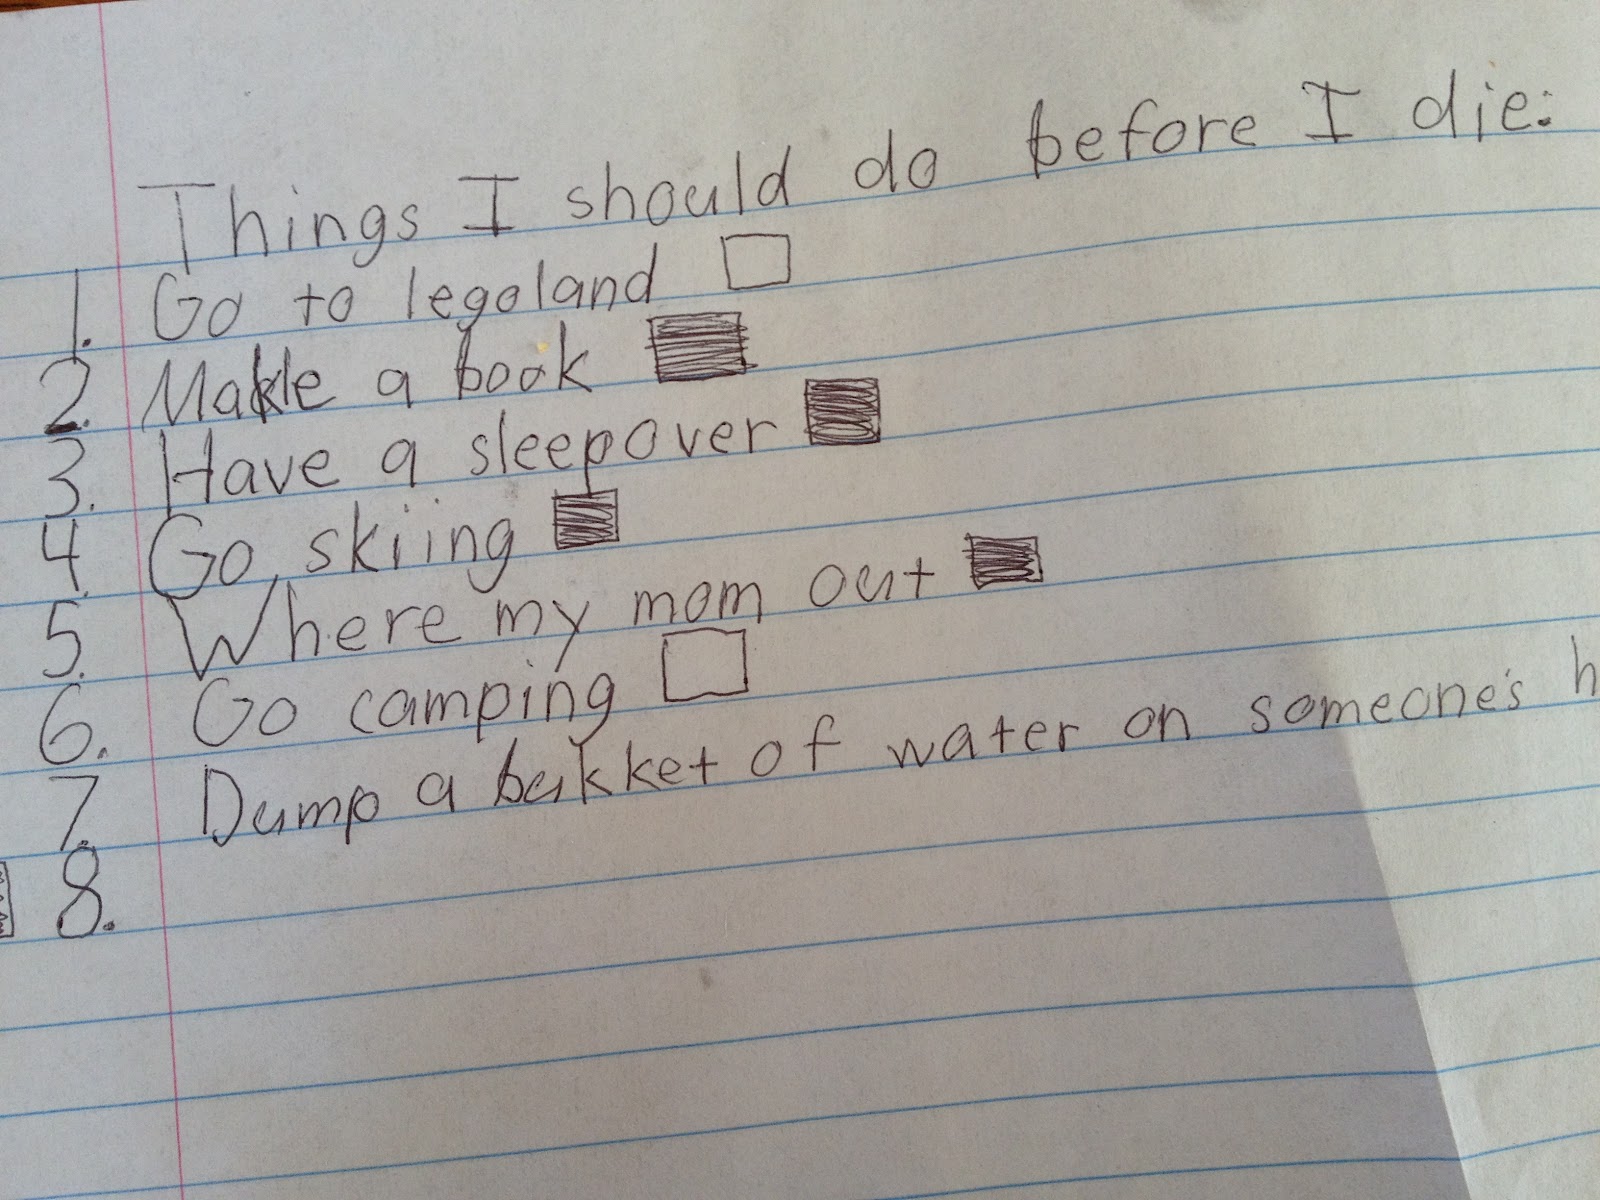 Things I should do before I die:
1. Go to legoland
2. Make a book
3. Have a sleepover
4. Go skiing
5. Where my mom out
6. Go camping
7. Dump a bukket of water on someone's
8.